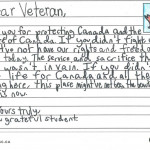 ear Veteran,
you for protecting Canada and the
of Canada. If you didn't fight
not have our rights and freedom
today. The service and sacrifice that
wasn't in vain. If you didn't
life for Canada and all the
here this place might not be the
is now.
Yours truly,
grateful student